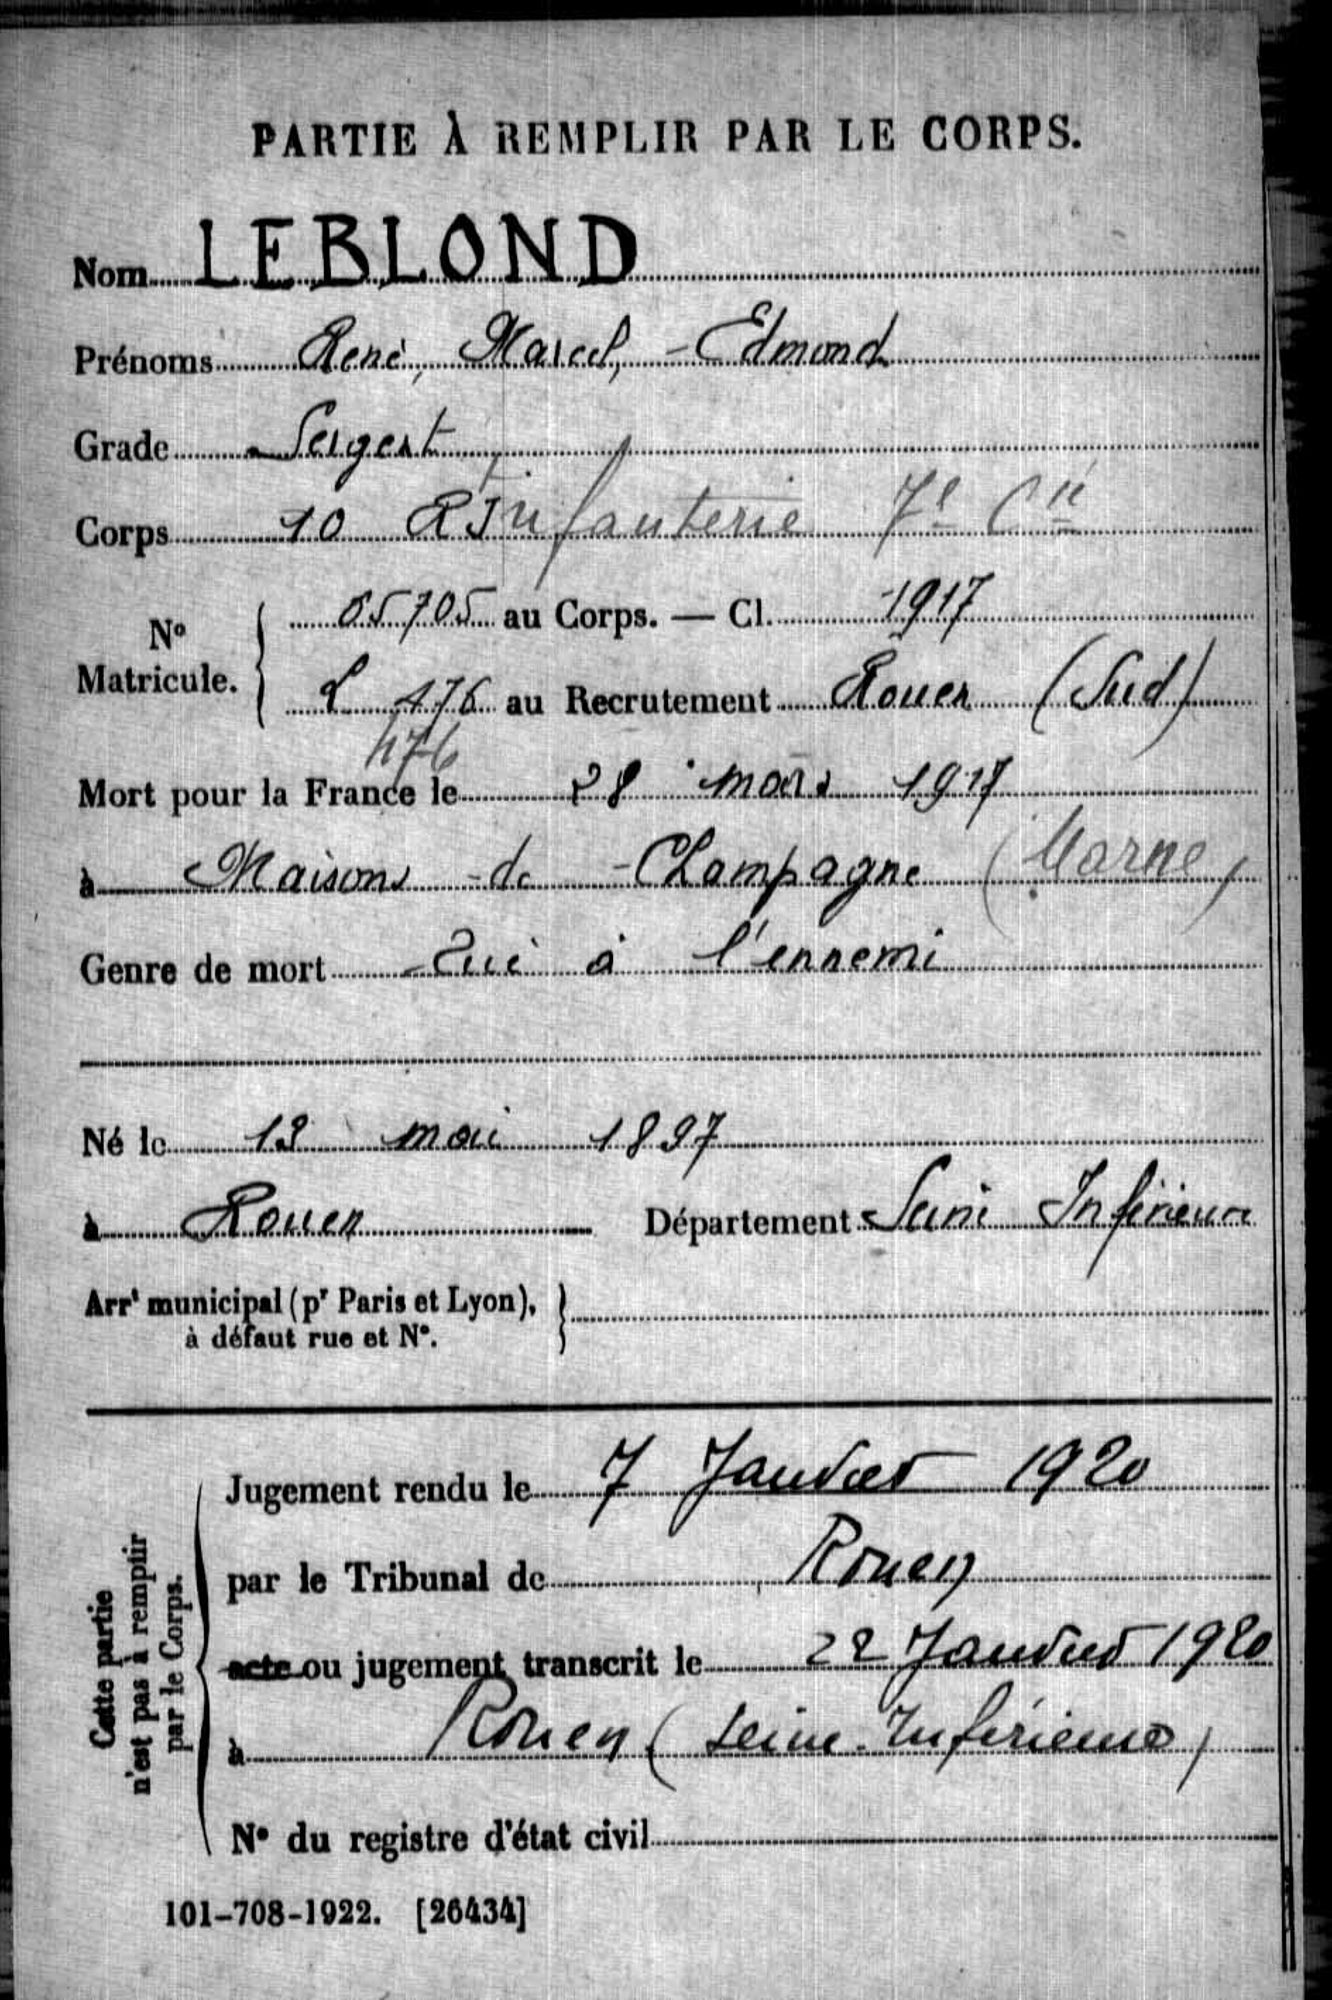 PARTIE À REMPLIR PAR LE CORPS.
Nom LEBLOND
Prénoms René, Marcel, Edmond
Grade Sergent
Corps 10 RInfanterie 7e Cie
No Matricule. 05705 au Corps. — Cl. 1917
L 476 au Recrutement Rouen (Sud)
476
Mort pour la France le 28 mars 1917
à Maisons de Champagne (Marne)
Genre de mort Tué à l'ennemi
Né le 13 mai 1897
à Rouen Département Seine Inférieure
Arrt municipal (pr Paris et Lyon),
à défaut rue et N°.
Cette partie
n'est pas à remplir
par le Corps.
Jugement rendu le 7 Janvier 1920
par le Tribunal de Rouen
acte ou jugement transcrit le 22 Janvier 1920
à Rouen (Seine-Inférieure)
N° du registre d'état civil
101-708-1922. [26434]